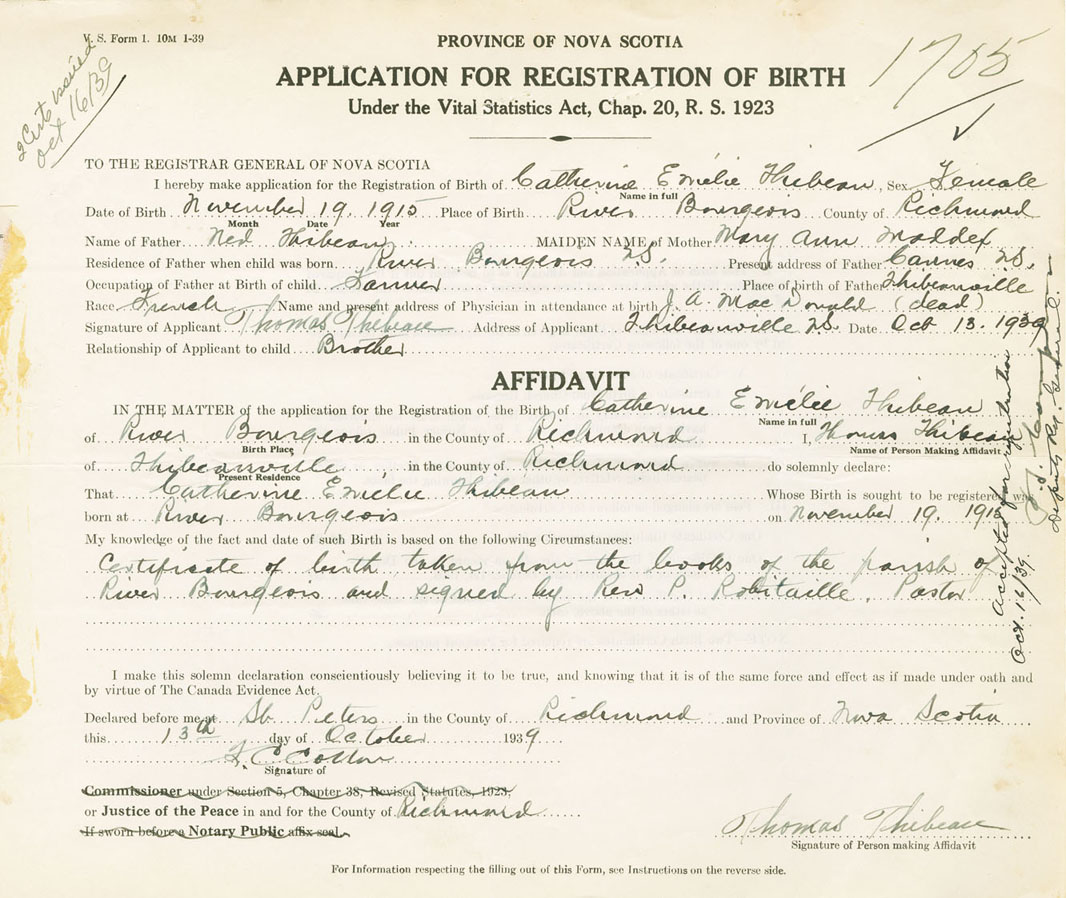 V. S. Form 1. 10M 1-39
2 Certs issued
Oct 16/39
1705
PROVINCE OF NOVA SCOTIA
APPLICATION FOR REGISTRATION OF BIRTH
Under the Vital Statistics Act, Chap. 20, R. S. 1923
TO THE REGISTRAR GENERAL OF NOVA SCOTIA
I hereby make application for the Registration of Birth of Catherine Emélie Thibeau, Sex Female
Name in full
Date of Birth November 19, 1915 Place of Birth River Bourgeois County of Richmond
Month Date Year
Name of Father Ned Thibeau MAIDEN NAME of Mother Mary Ann Maddex
Residence of Father when child was born River Bourgeois N.S. Present address of Father Cannes N.S.
Occupation of Father at Birth of child Farmer Place of birth of Father Thibeauville
Race French Name and present address of Physician in attendance at birth J. A. MacDonald (dead)
Signature of Applicant Thomas Thibeau Address of Applicant Thibeauville N.S. Date Oct 13. 1939
Relationship of Applicant to child Brother
AFFIDAVIT
IN THE MATTER of the application for the Registration of the Birth of Catherine Emélie Thibeau
Name in full
of River Bourgeois in the County of Richmond I, Thomas Thibeau
Birth Place Name of Person Making Affidavit
of Thibeauville in the County of Richmond do solemnly declare:
Present Residence
That Catherine Emélie Thibeau Whose Birth is sought to be registered was
born at River Bourgeois on November 19. 1915
My knowledge of the fact and date of such Birth is based on the following Circumstances:
Certificate of birth taken from the books of the parish of
River Bourgeois and signed by Rev P. Robitaille, Pastor
I make this solemn declaration conscientiously believing it to be true, and knowing that it is of the same force and effect as if made under oath and
by virtue of The Canada Evidence Act.
Declared before me at St. Peters in the County of Richmond and Province of Nova Scotia
this 13th day of October 1939
Signature of
Commissioner under Section 5, Chapter 38, Revised Statutes, 1923,
or Justice of the Peace in and for the County of Richmond
If sworn before a Notary Public affix seal.
Thomas Thibeau
Signature of Person making Affidavit
For Information respecting the filling out of this Form, see Instructions on the reverse side.
Accepted for registration
Oct. 16/39.
Deputy Reg. General.